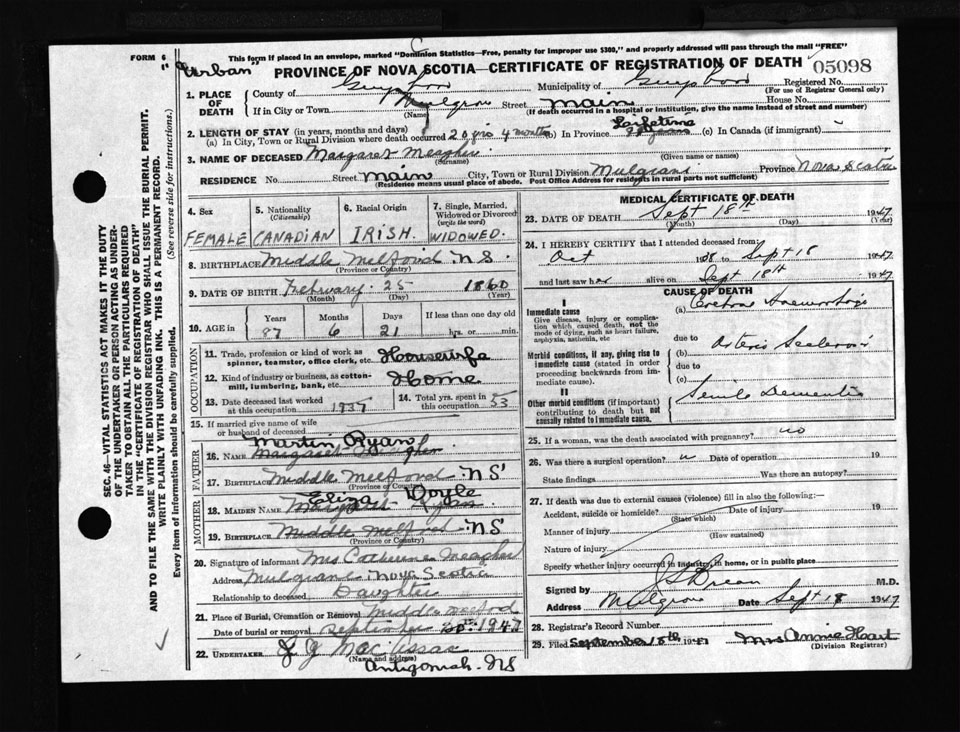 FORM 6
"Urban"
This form if placed in an envelope, marked "Dominion Statistics—Free, penalty for improper use $300," and properly addressed will pass through the mail "FREE"
PROVINCE OF NOVA SCOTIA—CERTIFICATE OF REGISTRATION OF DEATH 05098
1. PLACE OF DEATH
County of Guysboro Municipality of Guysboro Registered No.
(For use of Registrar General only)
If in City or Town Mulgrave Street Main House No.
(Name) (If death occurred in a hospital or institution, give the name instead of street and number)
2. LENGTH OF STAY (in years, months and days)
(a) In City, Town or Rural Division where death occurred 20 yrs 4 months (b) In Province Lifetime (c) In Canada (if immigrant)
3. NAME OF DECEASED Margaret Meagher
(Surname) (Given name or names)
RESIDENCE No. Street Main City, Town or Rural Division Mulgrave Province Nova Scotia
(Residence means usual place of abode. Post Office Address for residents in rural parts not sufficient)
4. Sex 5. Nationality (Citizenship) 6. Racial Origin 7. Single, Married, Widowed or Divorced (write the word)
FEMALE CANADIAN IRISH WIDOWED.
8. BIRTHPLACE Middle Melford NS
(Province or Country)
9. DATE OF BIRTH February 25 1860
(Month) (Day) (Year)
10. AGE in Years Months Days If less than one day old
87 6 21 hrs. or min.
OCCUPATION
11. Trade, profession or kind of work as spinner, teamster, office clerk, etc. Housewife
12. Kind of industry or business, as cotton-mill, lumbering, bank, etc. Home
13. Date deceased last worked at this occupation 1937 14. Total yrs. spent in this occupation 53
15. If married give name of wife or husband of deceased
FATHER
Martin Ryan
16. Name Margaret Meagher
17. Birthplace Middle Melford NS
(Province or Country)
MOTHER
Eliza Doyle
18. Maiden Name Margaret Ryan
19. Birthplace Middle Melford NS
(Province or Country)
20. Signature of informant Mrs Catherine Meagher
Address Mulgrave Nova Scotia
Relationship to deceased Daughter
21. Place of Burial, Cremation or Removal Middle Melford
Date of burial or removal September 20th 1947
22. UNDERTAKER J J MacIssac
(Name and address)
Antigonish NS
MEDICAL CERTIFICATE OF DEATH
23. DATE OF DEATH Sept 18th 1947
(Month) (Day) (Year)
24. I HEREBY CERTIFY that I attended deceased from:
Oct to Sept 18 1947
and last saw her alive on Sept 18th 1947
CAUSE OF DEATH
I
Immediate cause
Give disease, injury or complication which caused death, not the mode of dying, such as heart failure, asphyxia, asthenia, etc
(a) Haemorrhage
due to
Morbid conditions, if any, giving rise to immediate cause (stated in order proceeding backwards from immediate cause).
(b) Arterio Sclerosis
due to
(c)
II
Other morbid conditions (if important) contributing to death but not causally related to immediate cause.
Senile Dementia
25. If a woman, was the death associated with pregnancy? no
26. Was there a surgical operation? Date of operation 19
State findings Was there an autopsy?
27. If death was due to external causes (violence) fill in also the following:—
Accident, suicide or homicide? Date of injury 19
(State which)
Manner of injury
(How sustained)
Nature of injury
Specify whether injury occurred in industry, in home, or in public place
Signed by M.D.
Address Mulgrave Date Sept 18 1947
28. Registrar's Record Number
29. Filed September 18th 1947 Mrs Annie Hart
(Division Registrar)
SEC. 46—VITAL STATISTICS ACT MAKES IT THE DUTY
OF THE UNDERTAKER OR PERSON ACTING AS UNDERTAKER
TO OBTAIN ALL THE PARTICULARS REQUIRED
IN THE "CERTIFICATE OF REGISTRATION OF DEATH"
AND TO FILE THE SAME WITH THE DIVISION REGISTRAR WHO SHALL ISSUE THE BURIAL PERMIT.
WRITE PLAINLY WITH UNFADING INK. THIS IS A PERMANENT RECORD.
Every item of Information should be carefully supplied. (See reverse side for instructions.)